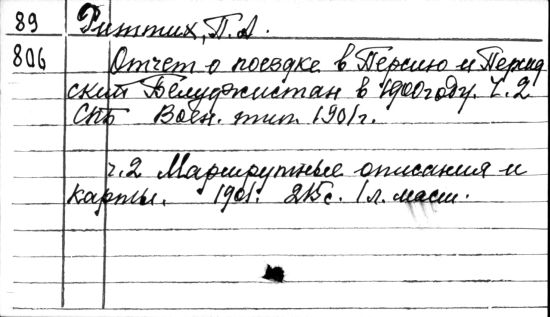 89 Риттих, П.А.
806 Отчет о поездке в Персию и Персид
ский Белуджистан в 1900 году. Ч.2
СПБ Воен. тип. 1901г.
ч.2 Маршрутные описания и
карты. 1901. 215с. 1 л. масш.